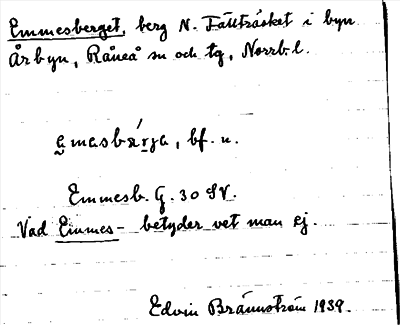 Emmesberget, berg N. Fällträsket i byn
Årbyn, Råneå sn och tg, Norrb. l.
emasbárja, bf. n.
Emmesb. G. 30 SV.
Vad Emmes- betyder vet man ej.
Edvin Brännström 1939.